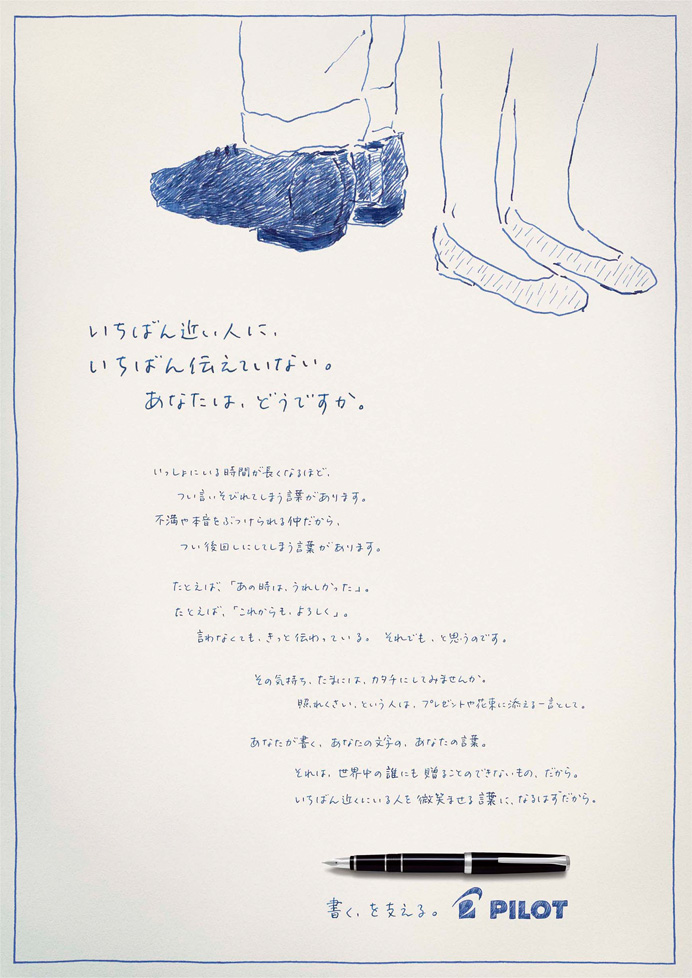 いちばん近い人に、
いちばん伝えていない。
あなたは、どうですか。
いっしょにいる時間が長くなるほど、
つい言いそびれてしまう言葉があります。
不満や本音をぶつけられる仲だから、
つい後回しにしてしまう言葉があります。
たとえば、「あの時は、うれしかった」。
たとえば、「これからも、よろしく」。
言わなくても、きっと伝わっている。 それでも、と思うのです。
その気持ち、たまには、カタチにしてみませんか。
照れくさい、という人は、プレゼントや花束に添える一言として。
あなたが書く、あなたの文字の、あなたの言葉。
それは、世界中の誰にも贈ることのできないもの、だから。
いちばん近くにいる人を微笑ませる言葉に、なるはずだから。
書く、を支える。 PILOT